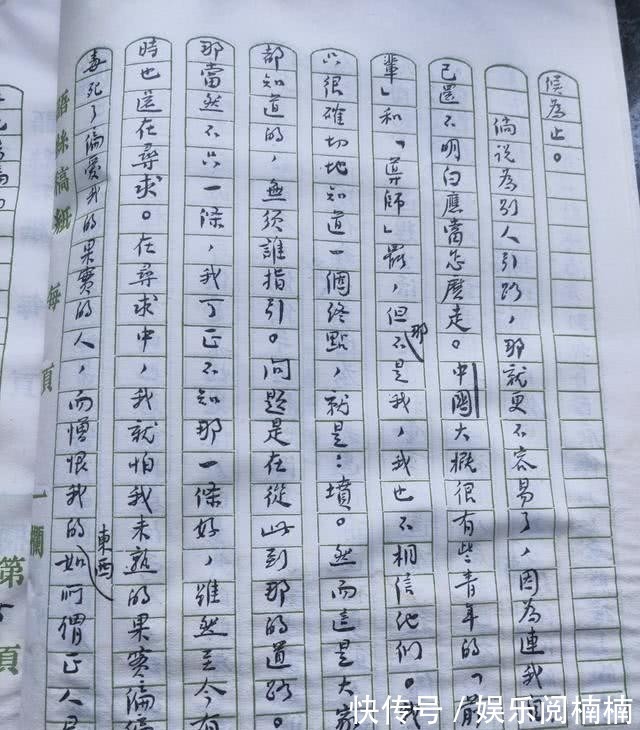 候為止。
倘說為別人引路，那就更不容易了，因為連我自
己還不明白應當怎麼走。中國大概很有些青年的「前
輩」和「導師」罷，但那不是我，我也不相信他們。我
只很確切地知道一個終點，就是：墳。然而這是大家
都知道的，無須誰指引。問題是在從此到那的道路。
那當然不只一條，我可正不知那一條好，雖然至今有
時也還在尋求。在尋求中，我就怕我未熟的果實偏偏
毒死了偏愛我的果實的人，而憎恨我的東西如所謂正人君
語絲稿紙 每頁一欄
第 頁
快传号/娱乐阅楠楠